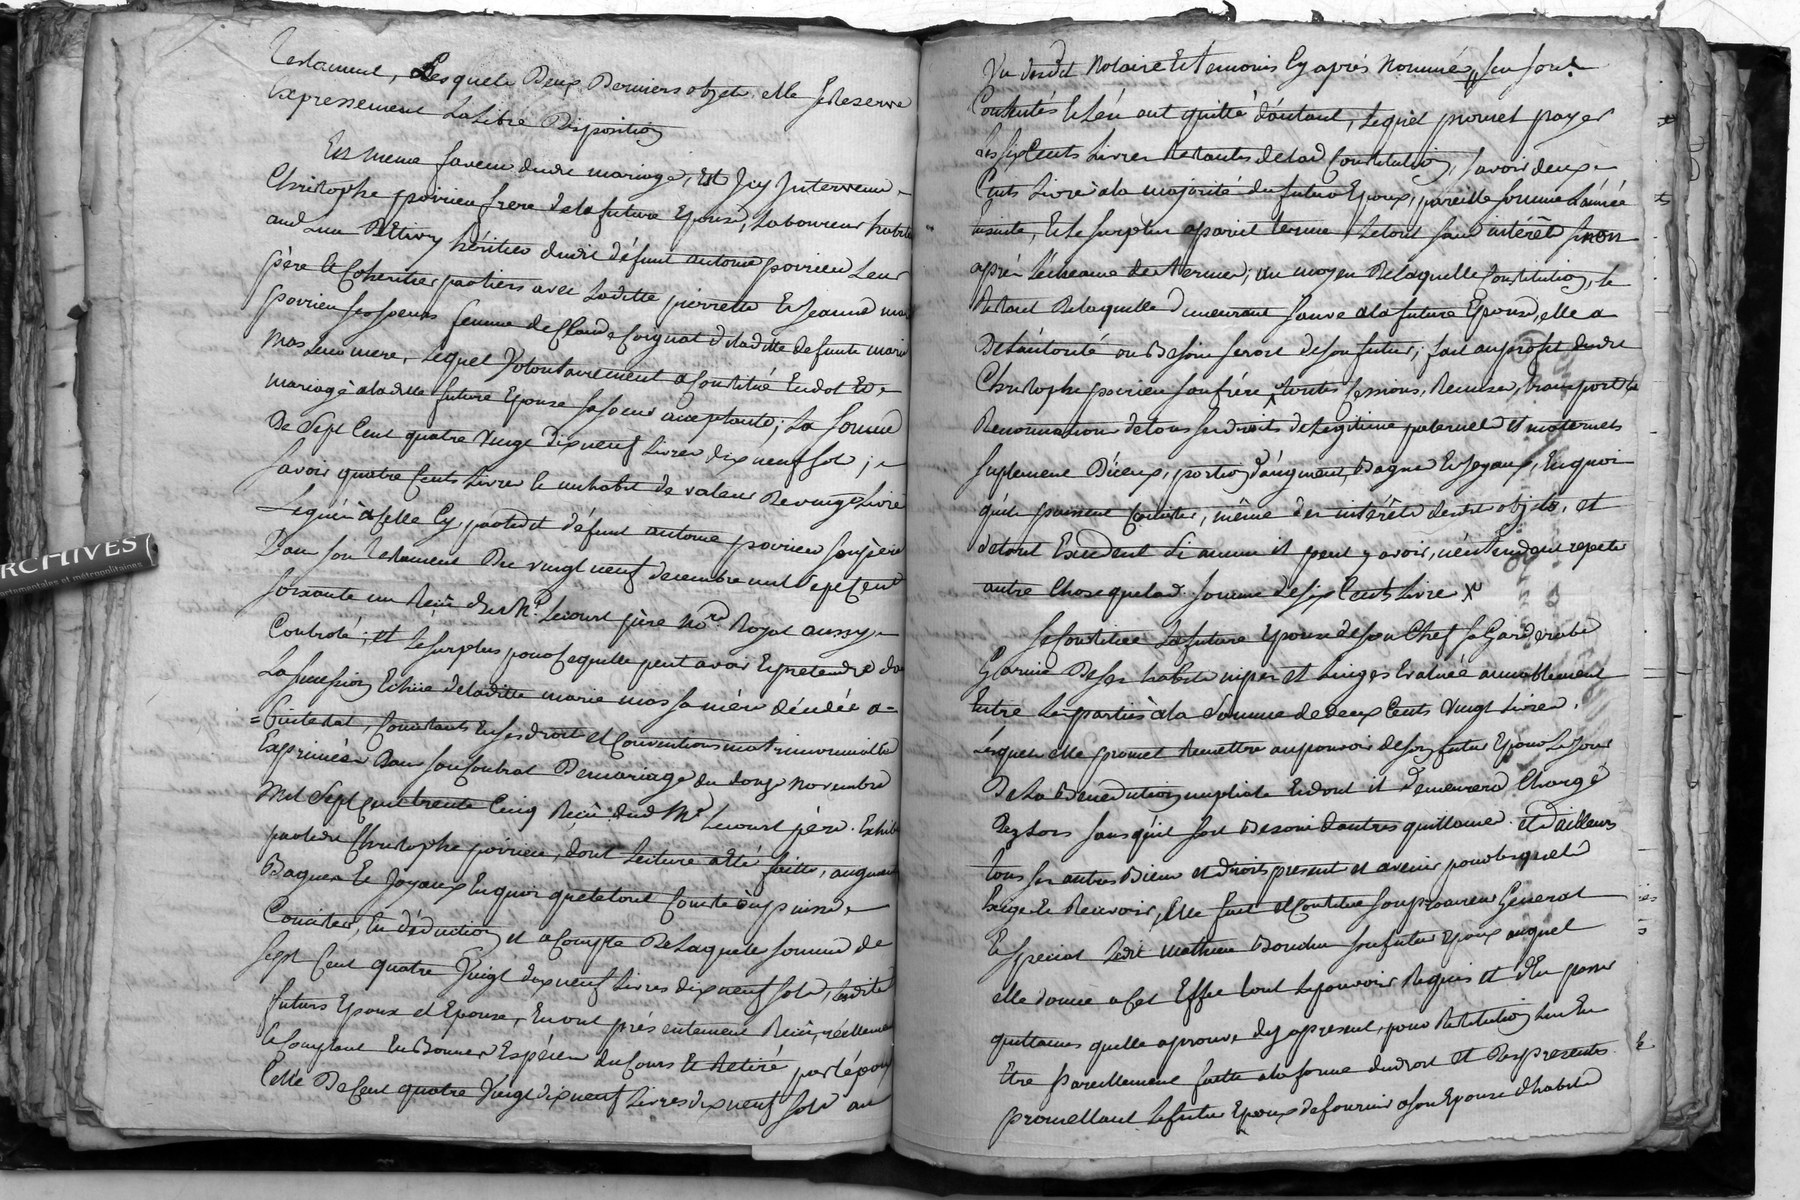 Testament, Lesquels Deux Derniers objets elle se Reserve
Expressement La Libre Disposition
En meme faveur dudit mariage, Est Icy Intervenu
Christophe poirieu frere de la future Epouse, Laboureur habitant
héritier dudit défunt antoine poirieu Leur
père et Coheritier partiers avec Laditte pierrette et Jeanne marie
poirieu ses soeurs femme de Claude Coignat et de laditte defunte marie
mas Leur mere, Lequel Volontairement a Constitué En dot Et
mariage a laditte future Epouse sa soeur acceptante, La somme
De Sept Cent quatre Vingt Dix neuf Livres dix neuf sols ;
savoir quatre Cents Livres et un habit de valeur De vingt Livres
Legués a Celle Cy par ledit défunt antoine poirieu son père
Dans son Testament Du vingt neuf decembre mil Sept Cent
soixante un Reçû dud. Me. Lecourt père Nore. Royal aussy
Controlé, et Le surplus pour Ce quelle peut avoir Et pretendre dans
La succession Echüe de laditte marie mas sa mère décédée a
Constants En ses droits et Conventions matrimonialles
Exprimées Dans son Contrat De mariage du douze novembre
Mil Sept Cent trente Cinq Reçû dud Me. Lecourt père. Exhibé
par ledit Christophe poirieu, dont Lecture a été faitte, augment
Bagues Et Joyaux En quoi que le tout Consiste ou puisse
Consister, En déduction et a Compte De Laquelle somme de
Sept Cent quatre Vingt dix neuf Livres dix neuf sols, Lesdits
futurs Epoux et Epouse, En ont présentement Reçû, réellement
Et Comptant En Bonnes Espéces du Cours Et Retiré par l'époux
Celle De Cent quatre Vingt dix neuf Livres dix neuf sols au
Vu desdit Notaire Et temoins Cy après Nommés, s'en sont
Contentés Et L'en ont quitté d'autant, Lequel promet payer
Les six Cents Livres Restantes de lad. Constitution, savoir deux
Cents Livres a la majorité du futur Epoux, pareille somme l'année
Ensuite, Et Le surplus a pareil terme Le tout sans intérêts sinon
après L'échéance des termes, au moyen De laquelle Constitution, le
Retard De laquelle Demeurant sauve a la future Epouse, elle a
De l'autorité ou Besoin seroit de son futur, fait au profit dudit
Christophe poirieu son frère toutes Cessions, Remises, transport et
Renonciation de tous ses droits de Legitime paternels et maternels
suplement D'iceux, portion d'augment, Bagues Et Joyaux, En quoi
qu'ils puissent Consister, même des intérêts desdits objets, et
de tout Excédent si aucun il peut y avoir, n'entendant repeter
autre Chose que lad. somme de six Cents Livres
se Constitue La future Epouse de son Chef sa Garderobe
Garnie De ses habits nipes et Linges Evaluée amiablement
Entre Les parties a la Somme de deux Cents Vingt Livres,
Lesquels elle promet Remettre au pouvoir de son futur Epoux Le Jour
De La Bénédiction nuptiale Et dont il Demeurera Chargé
Dez Lors sans qu'il soit Besoin d'autres quittances et d'ailleurs
tous ses autres Biens et droits present et avenir pour lesquels
Exiger Et Recevoir, Elle fait et Constitue son procureur General
Et special Ledit mathieu Boudin son futur Epoux auquel
elle donne a Cet Effet tout Le pouvoir Requis et d'En passer
quittances quelle aprouve dez apresent, pour Restitution Leur En
Etre pareillement faitte a la forme du droit et Des presentes
promettant Le futur Epoux de fournir a son Epouse d'habits